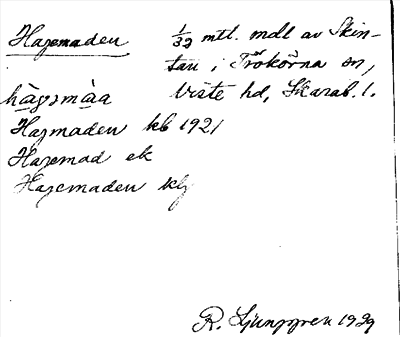 Hagemaden
1/32 mtl. mdl av Skin-
tau i Trökörna sn,
Viste hd, Skarab. l.
hàgǝmàa
Hagmaden kb 1921
Hagemad ek
Hagemaden klj
R. Ljunggren 1929